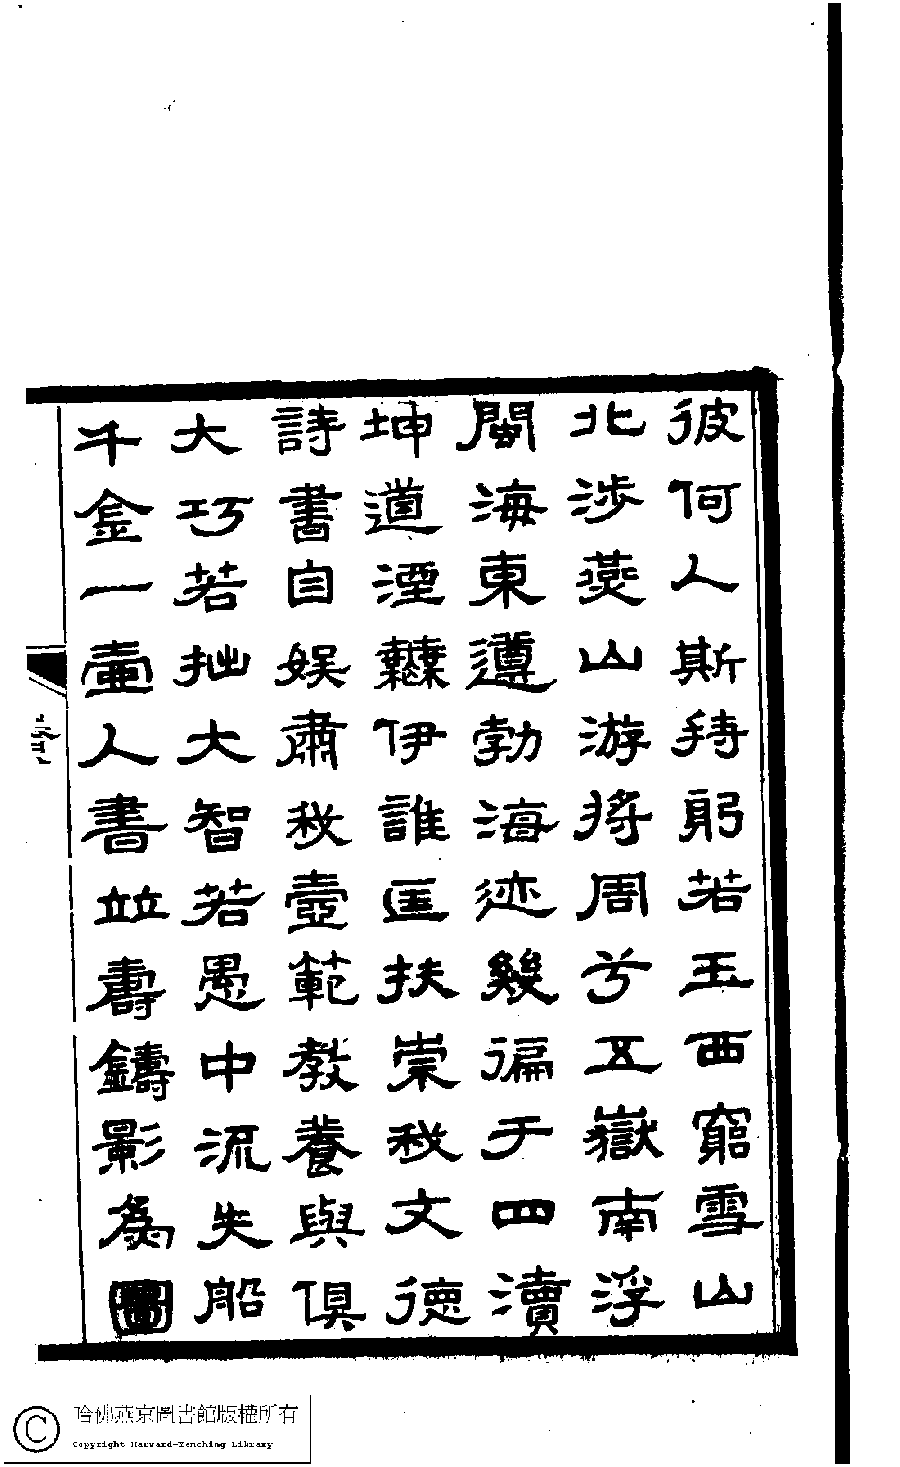 彼何人斯持躬若玉西窮雪山
北涉燕山游將周兮五嶽南浮
閩海東遵勃海迹幾徧于四瀆
坤道湮伊誰匡扶崇我文德
詩書自娛肅我壼範教養與俱
大巧若拙大智若愚中流失船
千金一壺人書並壽鑄影為圖
哈佛燕京圖書館版權所有
Copyright Harvard-Yenching Library